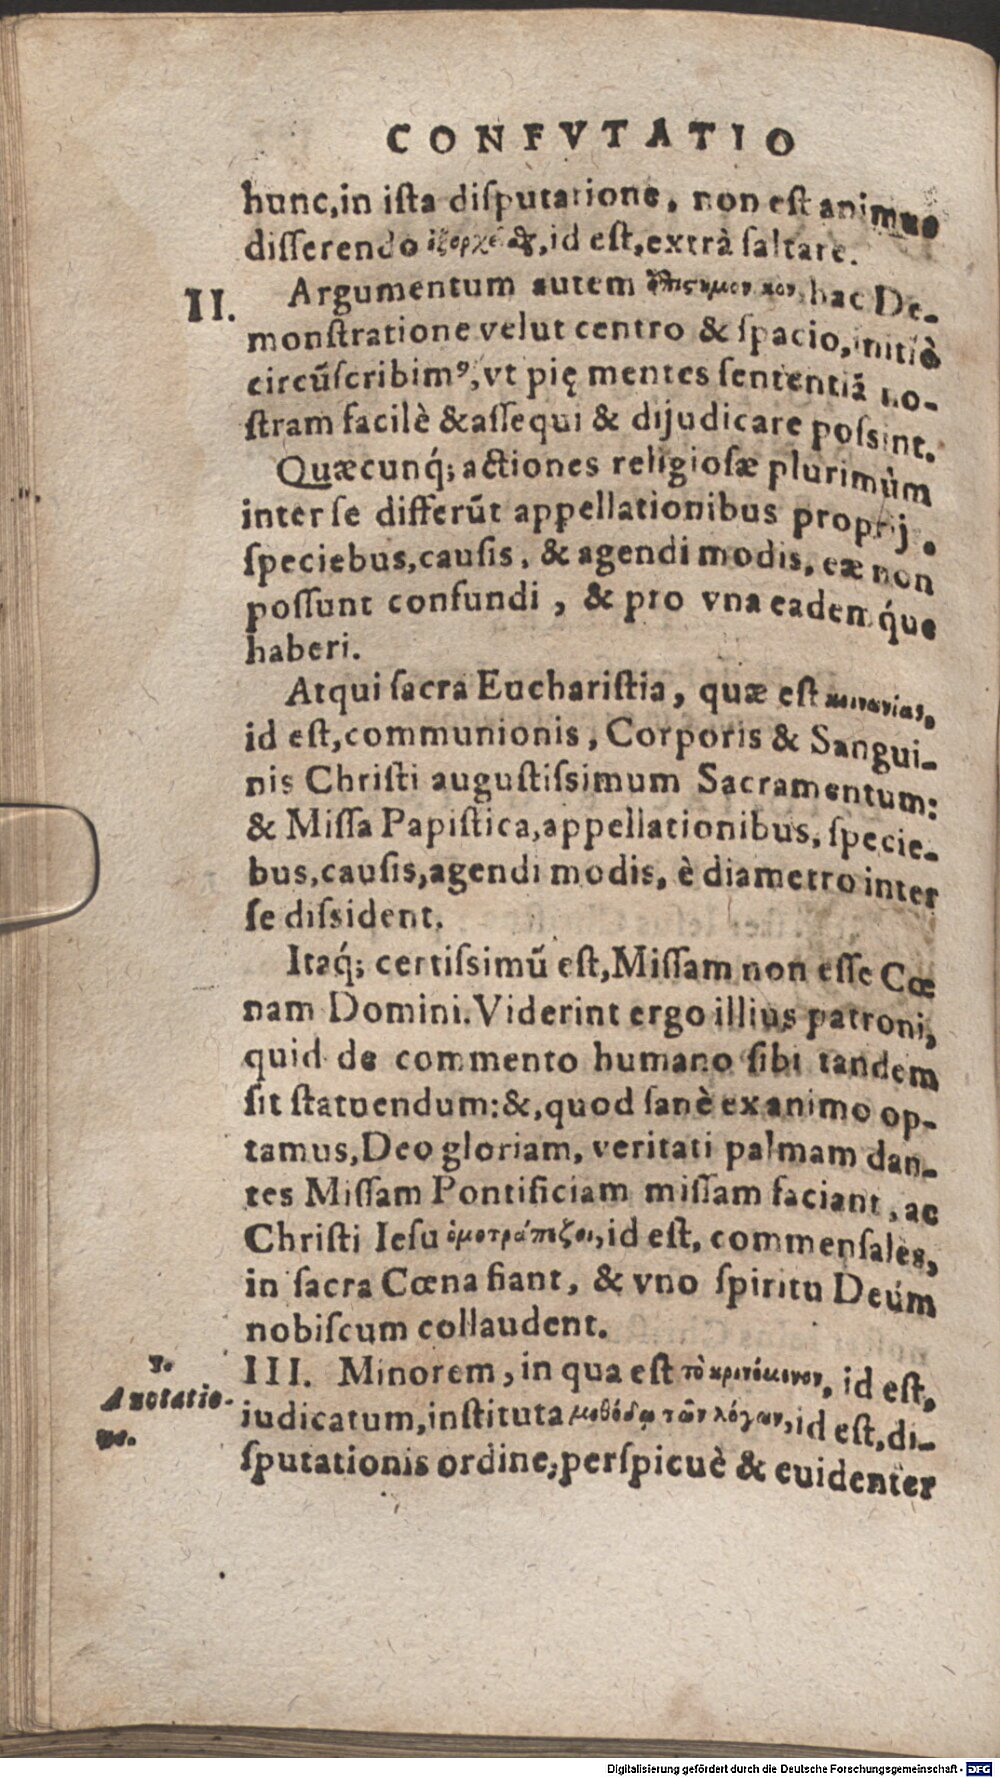 CONFVTATIO
hunc,in iſta diſputatione, non eſt animus
diſſerendo ἐξορχεῖϑαι,id eſt,extrà ſaltare.
II. Argumentum autem hac De-
monſtratione velut centro & ſpacio,initiò
circūſcribimꝰ,vt pię mentes ſententiā no-
ſtram facilè & aſſequi & dijudicare poſsint.
Quæcunq́; actiones religioſæ plurimùm
inter ſe differūt appellationibus proprij,
ſpeciebus,cauſis, & agendi modis, eæ non
poſſunt confundi, & pro vna eademq́ue
haberi.
Atqui ſacra Euchariſtia, quæ eſt κοινωνίας,
id eſt,communionis, Corporis & Sangui-
nis Chriſti auguſtiſsimum Sacramentum:
& Miſſa Papiſtica,appellationibus, ſpecie-
bus,cauſis,agendi modis, è diametro inter
ſe diſsident.
Itaq́; certiſsimū eſt,Miſſam non eſſe Cœ
nam Domini. Viderint ergo illius patroni,
quid de commento humano ſibi tandem
ſit ſtatuendum:&,quod ſanè ex animo op-
tamus,Deo gloriam, veritati palmam dan-
tes Miſſam Pontificiam miſſam faciant, ac
Chriſti Ieſu ὁμοτράπεζοι,id eſt, commenſales,
in ſacra Cœna fiant, & vno ſpiritu Deúm
nobiſcum collaudent.
III. Minorem, in qua eſt τὸ κρινόμενον, id eſt,
Anotatio-
ne.
iudicatum,inſtituta μεθόδῳ τῶν λόγων,id eſt,di-
ſputationis ordine,perſpicuè & euidenter
Digitalisierung gefördert durch die Deutsche Forschungsgemeinschaft - DFG